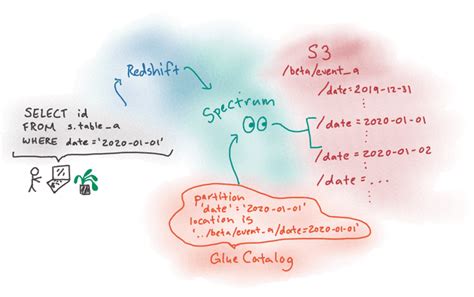 SELECT id
FROM s.table_a
WHERE date='2020-01-01'
Redshift
Spectrum
S3
/beta/event_a
/date=2019-12-31
/date=2020-01-01
/date=2020-01-02
/date=...
partition
'date'='2020-01-01'
location is
'../beta/event_a/date=2020-01-01'
Glue Catalog